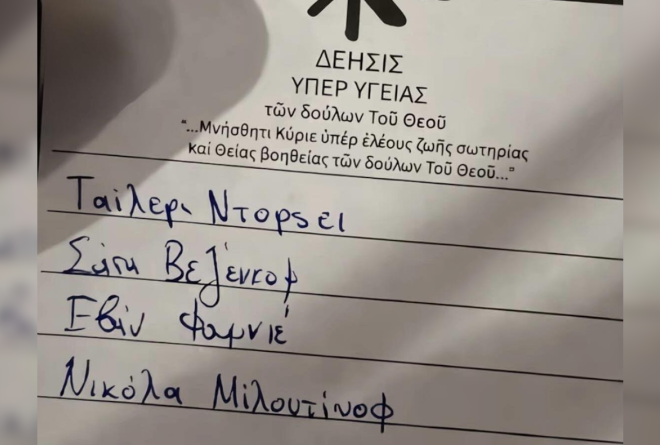 ΔΕΗΣΙΣ
ΥΠΕΡ ΥΓΕΙΑΣ
τῶν δούλων Τοῦ Θεοῦ
"...Μνήσθητι Κύριε ὑπέρ ἐλέους ζωῆς σωτηρίας
καί Θείας βοηθείας τῶν δούλων Τοῦ Θεοῦ..."
Ταίλερ Ντορσεϊ
Σάσα Βεζένκοφ
Εβάν Φουρνιέ
Νικόλα Μιλουτίνοφ